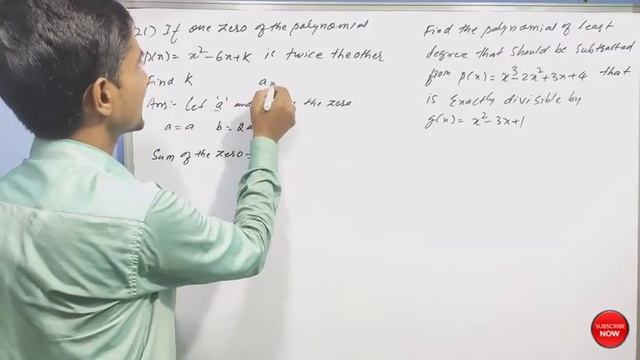 21) If one zero of the polynomial
p(x) = x²-6x+k is twice the other
Find K
a=
Ans:- Let 'a' and the zero
a = a b = 2a
Sum of the zero =
Find the polynomial of least
degree that should be subtracted
from p(x) = x³-2x²+3x+4 that
is Exactly divisible by
g(x) = x²-3x+1
SUBSCRIBE
NOW